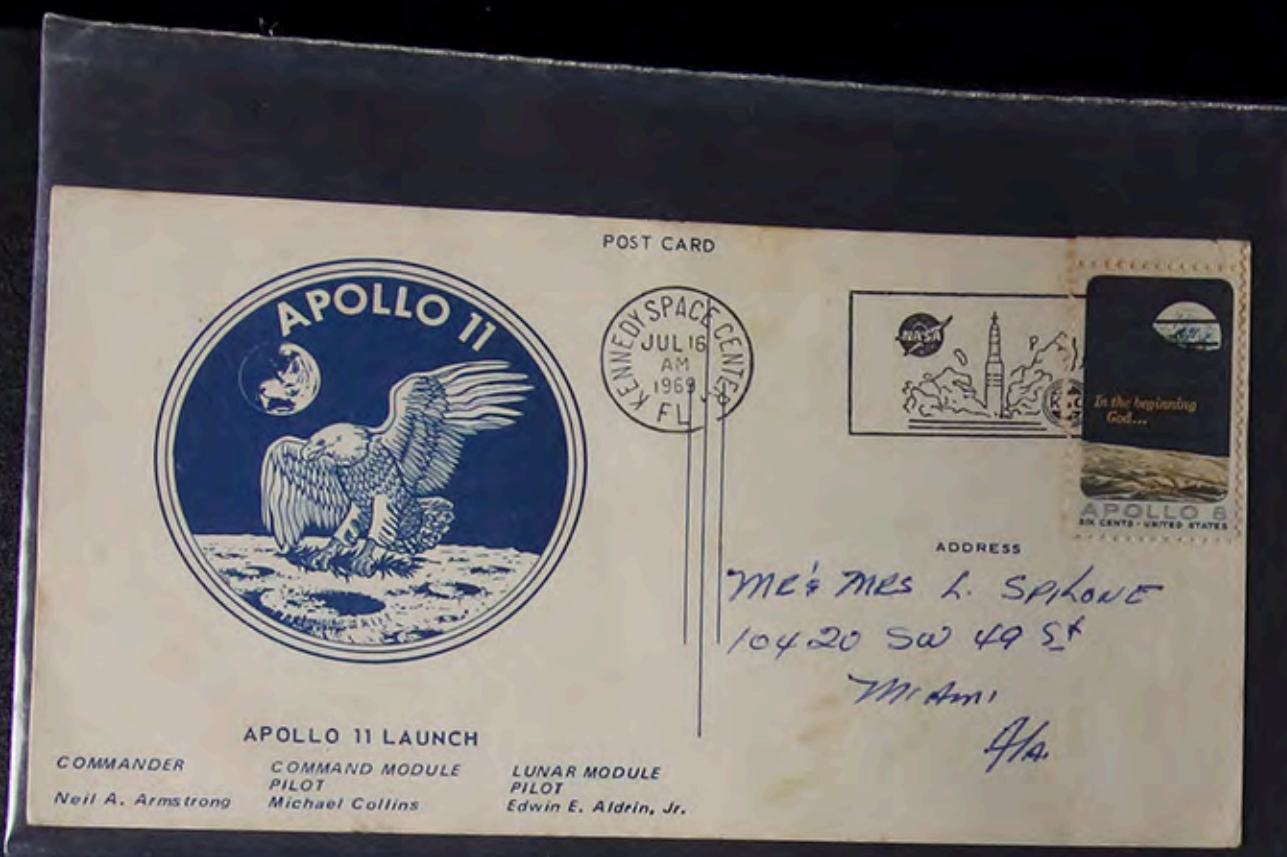 POST CARD
APOLLO 11
KENNEDY SPACE CENTER
JUL 16
AM
1969
FL
NASA
In the beginning
God...
APOLLO 8
SIX CENTS · UNITED STATES
ADDRESS
MR & MRS L. SPILONE
10420 SW 49 St
MIAMI
Fla.
APOLLO 11 LAUNCH
COMMANDER
Neil A. Armstrong
COMMAND MODULE
PILOT
Michael Collins
LUNAR MODULE
PILOT
Edwin E. Aldrin, Jr.